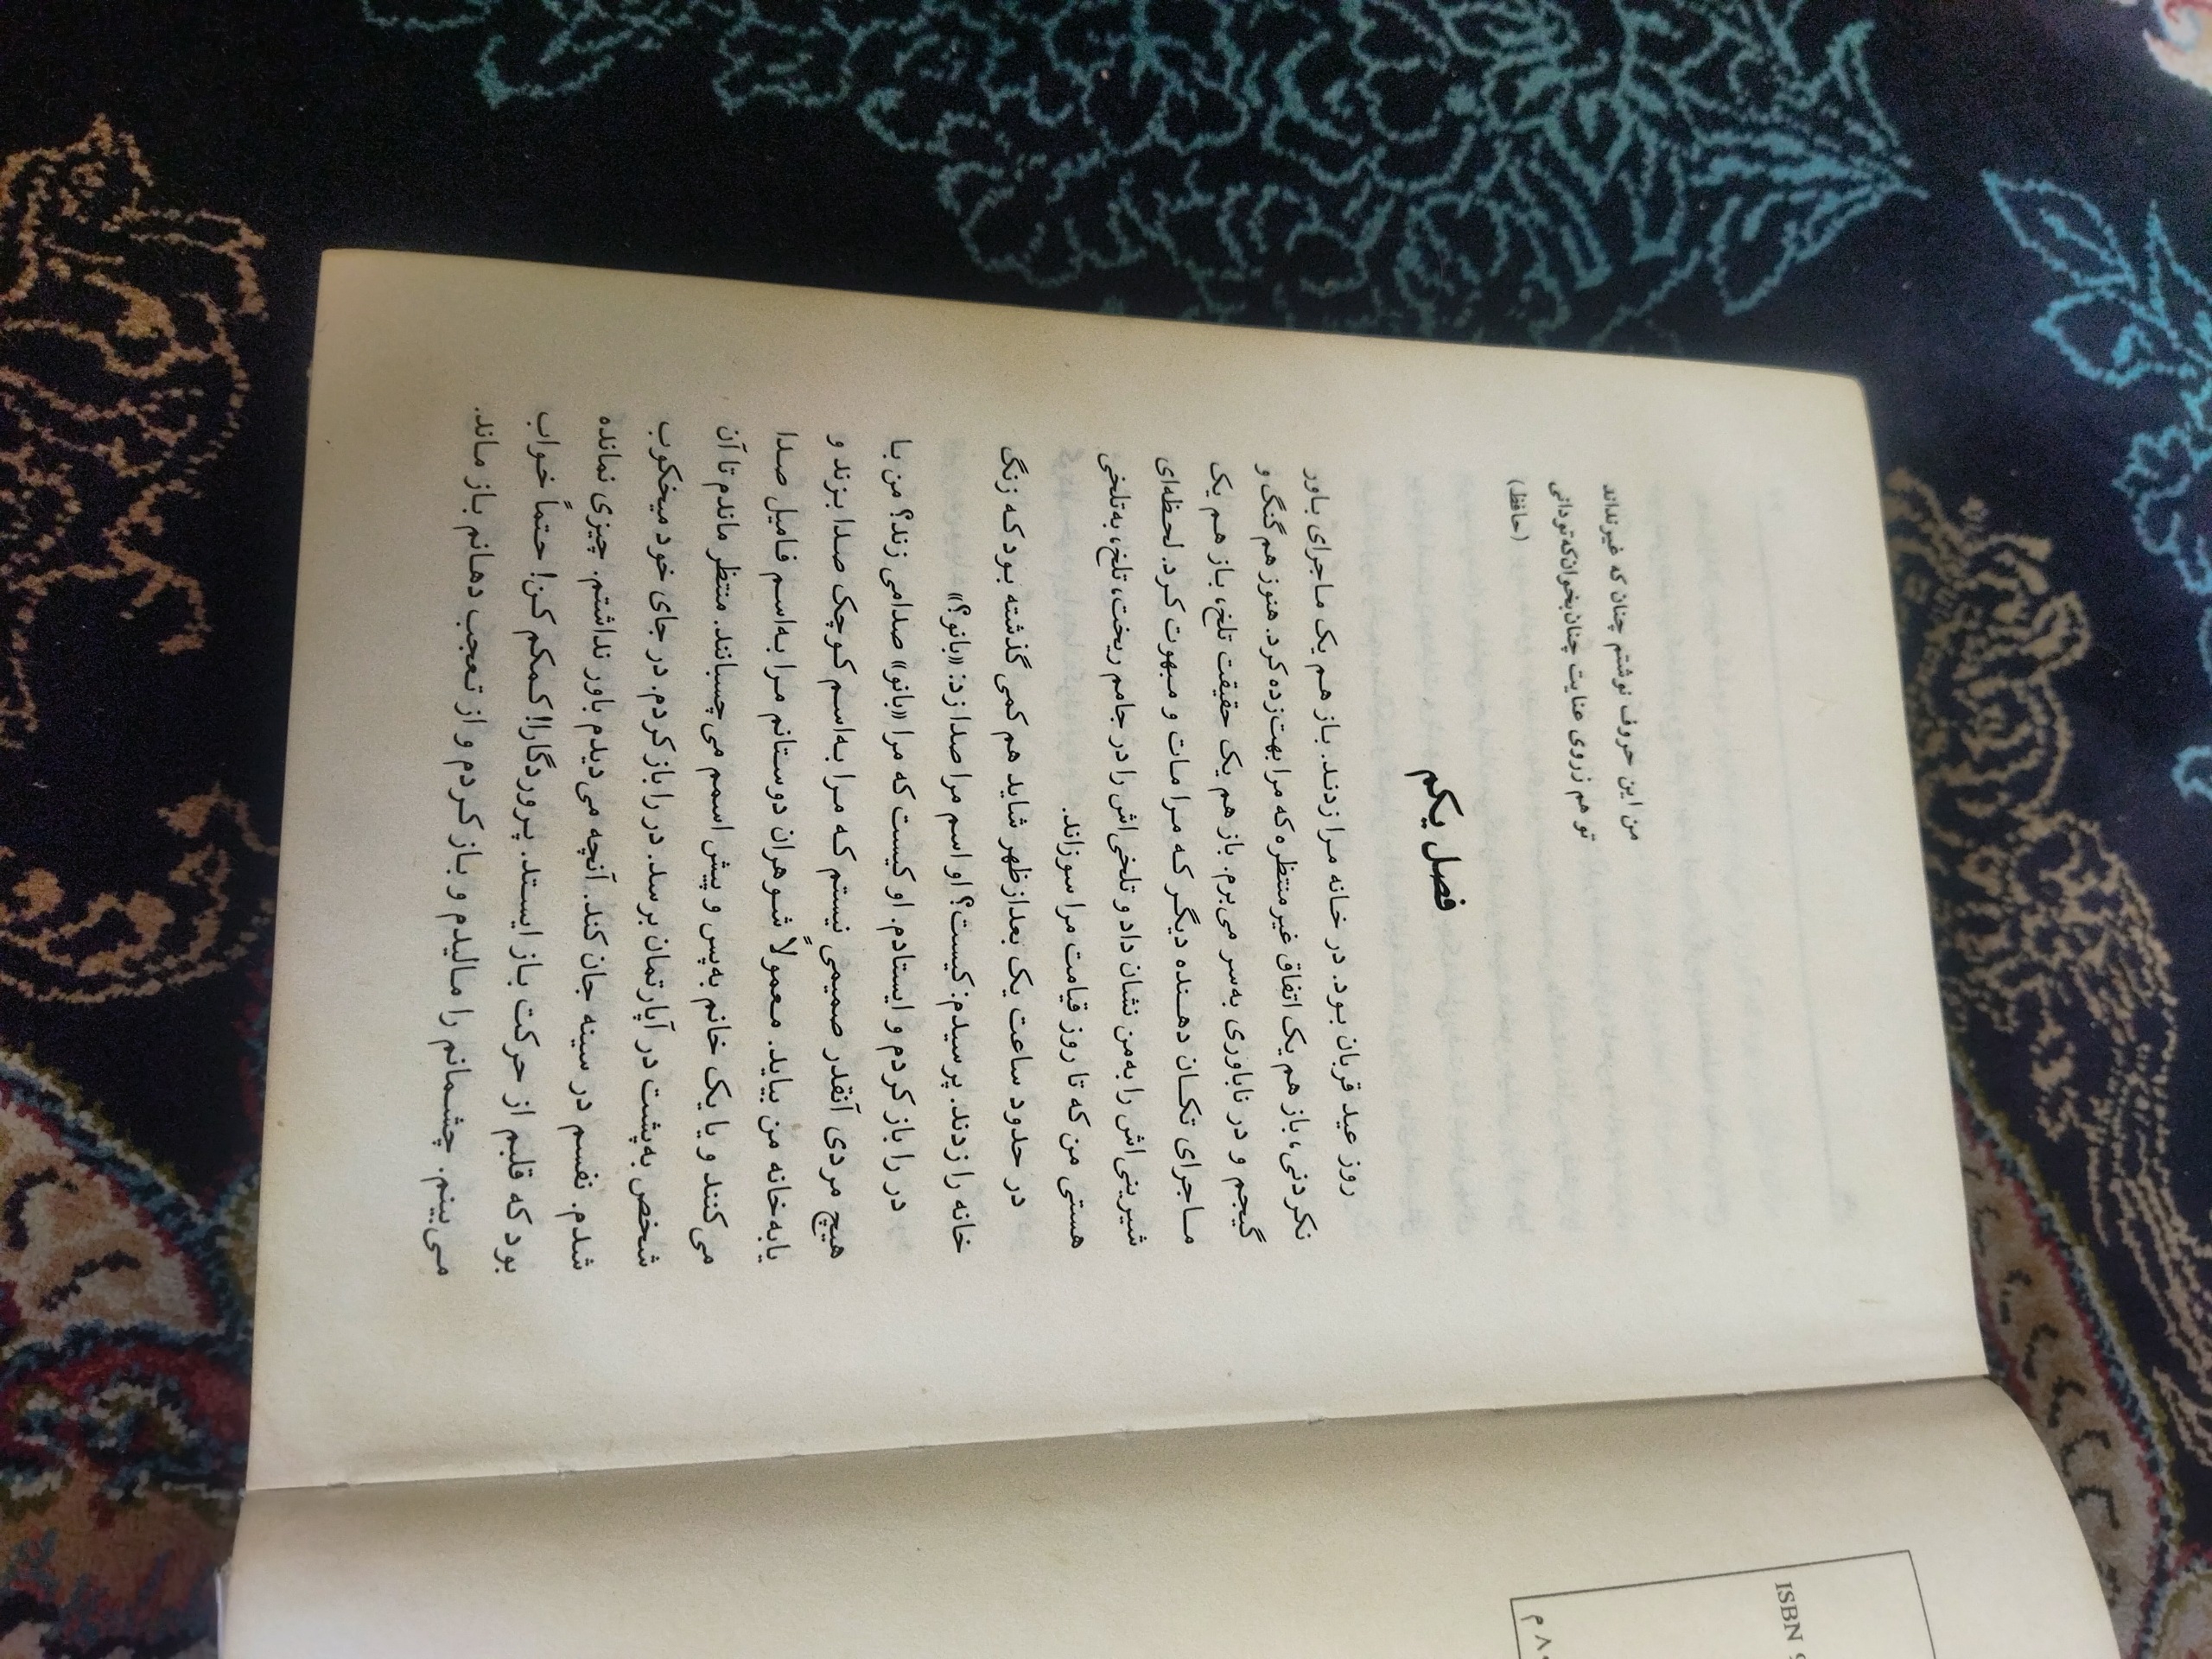 من این حروف نوشتم چنان که غیرنداند
تو هم ز روی عنایت چنان بخوان که تو دانی
(حافظ)
فصل یکم
روز عید قربان بود. در خانه مرا زدند. باز هم یک ماجرای باور
نکردنی، باز هم یک اتفاق غیرمنتظره که مرا بهت‌زده کرد. هنوز هم گنگ و
گیجم و در ناباوری به‌سر می‌برم. باز هم یک حقیقت تلخ، باز هم یک
ماجرای تکان دهنده دیگر که مرا مات و مبهوت کرد. لحظه‌ای
شیرینی‌اش را به‌من نشان داد و تلخی‌اش را در جامم ریخت، تلخ، به‌تلخی
هستی من که تا روز قیامت مرا سوزاند.
در حدود ساعت یک بعدازظهر شاید هم کمی گذشته بود که زنگ
خانه را زدند. پرسیدم: کیست؟ او اسم مرا صدا زد: «بانو؟»
در را باز کردم و ایستادم. او کیست که مرا «بانو» صدا می زند؟ من با
هیچ مردی آنقدر صمیمی نیستم که مرا به‌اسم کوچک صدا بزند و
یا به‌خانه من بیاید. معمولاً شوهران دوستانم مرا به‌اسم فامیل صدا
می‌کنند و یا یک خانم به‌پس و پیش اسمم می‌چسبانند. منتظر ماندم تا آن
شخص به‌پشت در آپارتمان برسد. در را باز کردم. در جای خود میخکوب
شدم. نفسم در سینه جان کند. آنچه می‌دیدم باور نداشتم. چیزی نمانده
بود که قلبم از حرکت باز ایستد. پروردگارا! کمکم کن! حتماً خواب
می‌بینم. چشمانم را مالیدم و باز کردم و از تعجب دهانم باز ماند.
ISBN